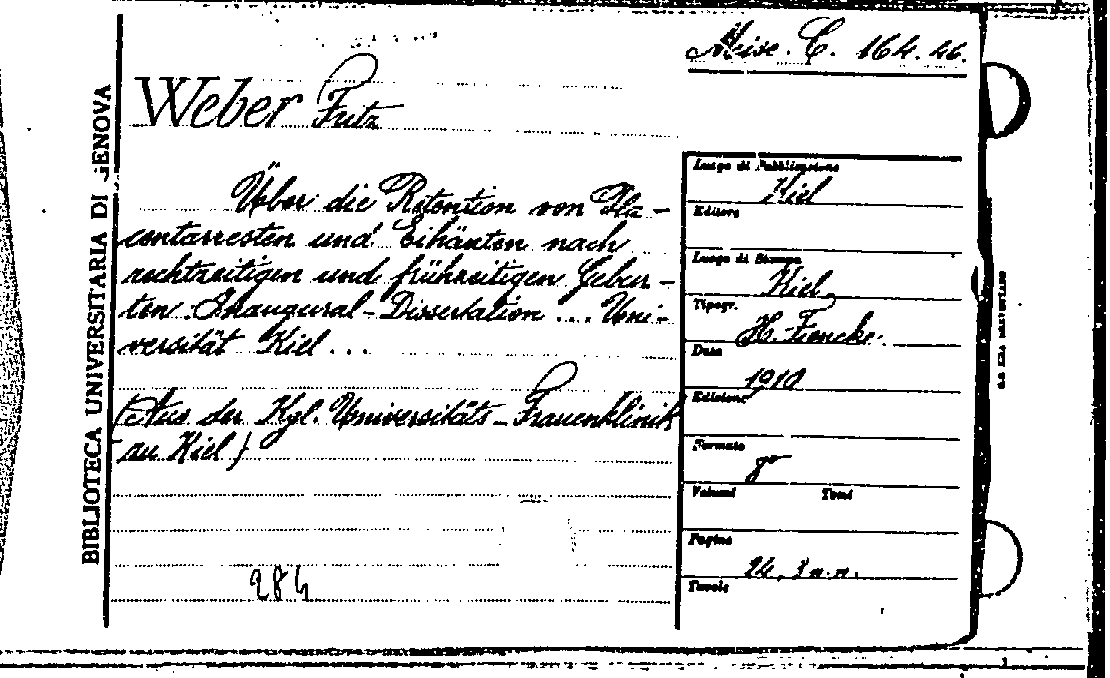 Misc. C. 164. 26.
Weber Fritz
BIBLIOTECA UNIVERSITARIA DI GENOVA
Über die Retention von Pla-
centarresten und Eihäuten nach
rechtzeitigen und frühzeitigen Gebur-
ten. Inaugural-Dissertation ... Uni-
versität Kiel ...
(Aus der Kgl. Universitäts-Frauenklinik
zu Kiel)
284
Luogo di Pubblicazione
Kiel
Editore
Luogo di Stampa
Kiel
Tipogr.
H. Fiencke.
Data
1910
Edizione
Formato
8°
Volumi Tomi
Pagine
24, 3 n.n.
Tavole